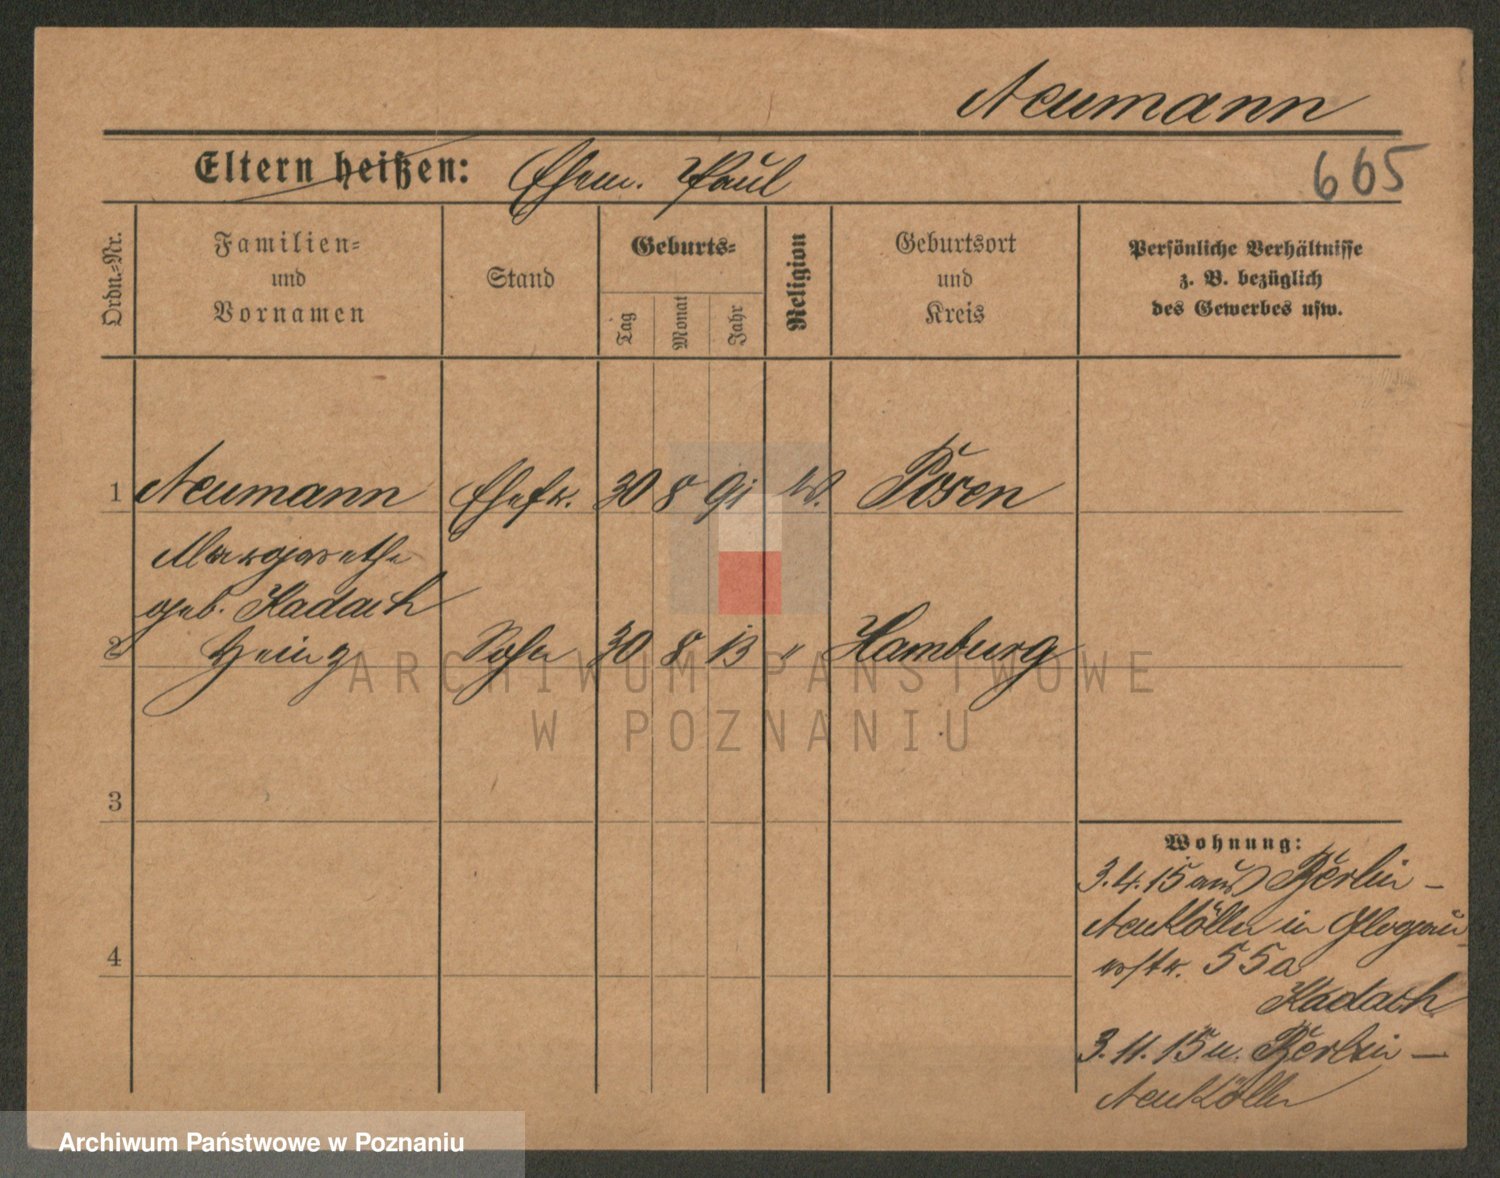 Neumann
Eltern heißen: Ehem. Paul
665
Ordn.-Nr.
Familien-
und
Vornamen
Stand
Geburts-
Tag
Monat
Jahr
Religion
Geburtsort
und
Kreis
Persönliche Verhältnisse
z. B. bezüglich
des Gewerbes usw.
1 Neumann Ehefr. 30 8 91 Posen
Margarethe
geb. Kadach
2 Heinz Sohn 30 8 13 " Hamburg
3
4
Wohnung:
3.4.15 aus Berlin-
Neukölln in Glogau-
erstr. 55a
Kadach
3.11.15 n. Berlin-
Neukölln
ARCHIWUM PAŃSTWOWE
W POZNANIU
Archiwum Państwowe w Poznaniu